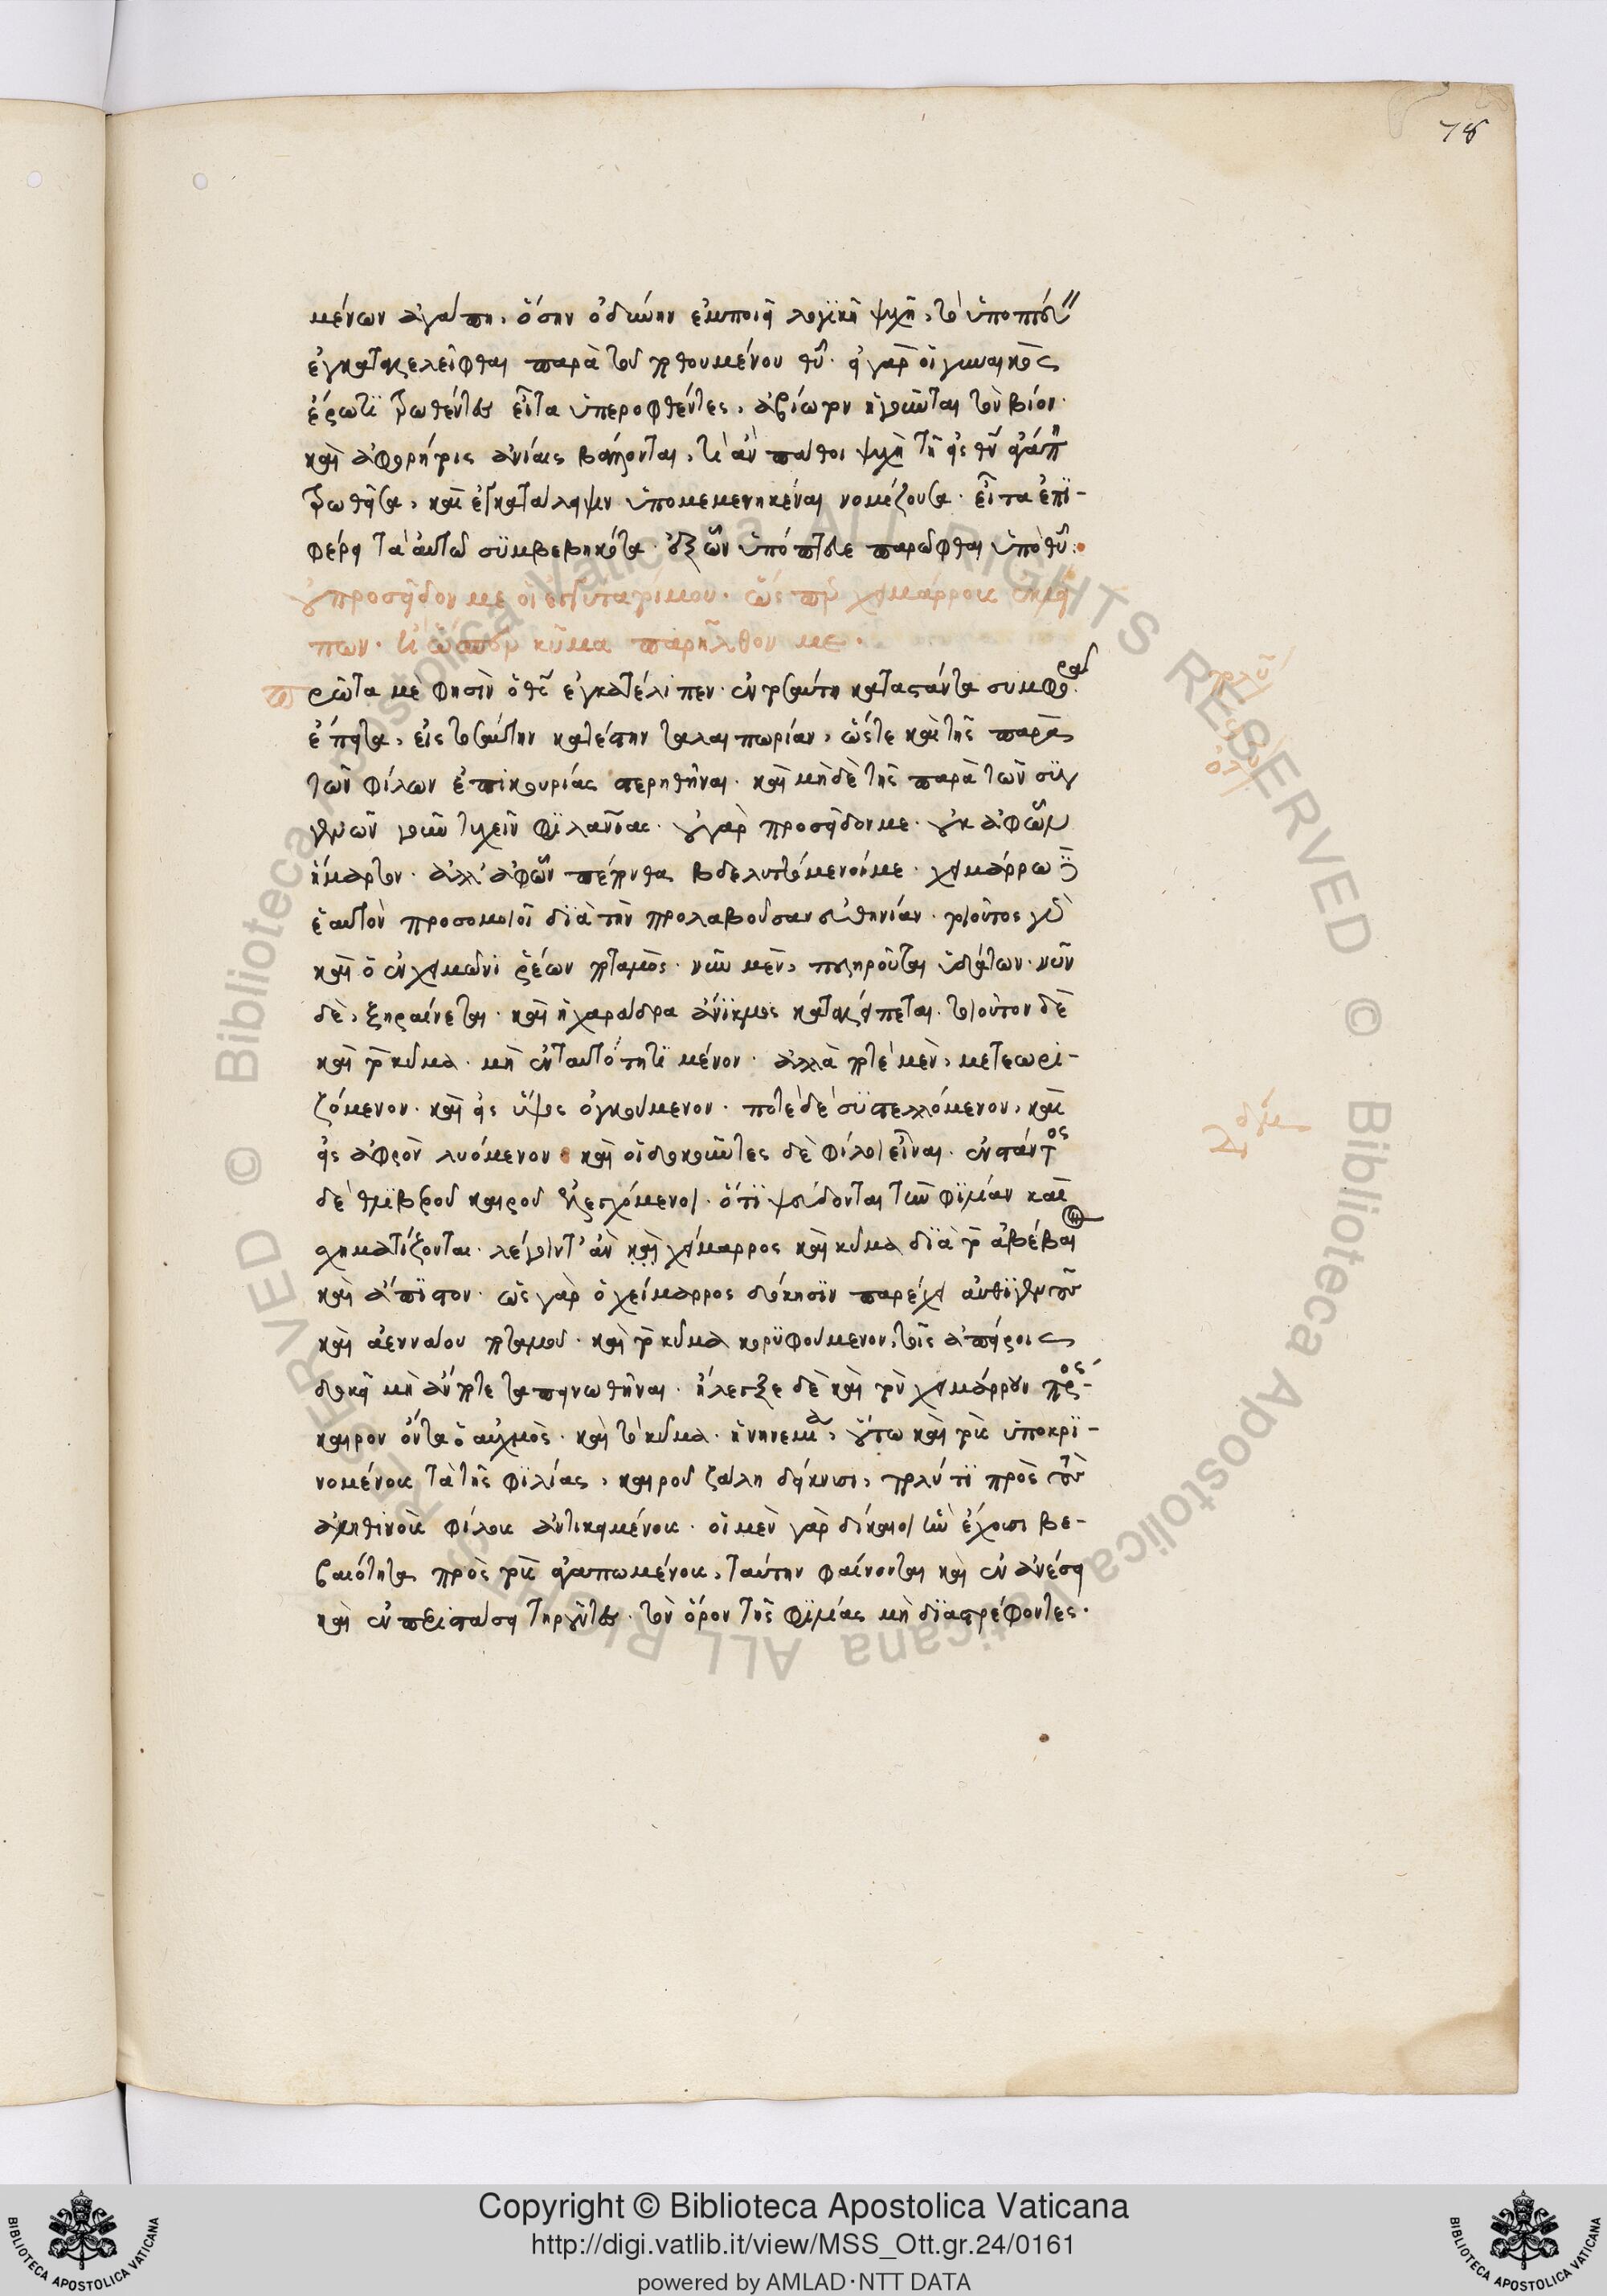 78
μένων ἀγάπη. ὅσην ὀδύνην ἐμποιεῖ λογϊκῆ ψυχῆ, τὸ ὑποπτεύειν
ἐγκαταλελεῖφθαι παρὰ τοῦ ποθουμένου θῦ. εἰ γὰρ οἱ γυναικὸς
ἔρωτϊ τρωθέντες εἶτα ὑπεροφθέντες, ἀβίωτον ἡγοῦνται τὸν βίον.
καὶ ἀφορήτοις ἀνίαις βάλλονται, τί ἂν πάθοι ψυχὴ τῆ εἰς θν ἀγάπη
τρωθεῖσα, καὶ ἐγκατάληψιν ὑπομεμενηκέναι νομίζουσα. εἶτα ἐπϊ-
φέρει τὰ αὐτῶ συμβεβηκότα. ἐξ ὧν ὑπόπτευε παρῶφθαι ὑπὸ θῦ:
οὐ προσεῖδόν με οἱ ἐγγύτατοί μου. ὥσπερ χειμάρρους ἐκλεί
πων. ἢ ὥσπερ κῦμα παρῆλθόν με.
ρῶτα μὲ φησὶν ὁ θς ἐγκατέλιπεν. ἐν τοσαύτη καταστάντα συμφορᾶ
ἔπειτα, εἰς τοσαύτην κατέστην ταλαιπωρίαν, ὥστε καὶ τῆς παρὰ
τῶν φίλων ἐπικουρίας στερηθῆναι. καὶ μηδὲ τῆς παρὰ τῶν συγ
γενῶν γοῦν τυχεῖν φϊλανίας. οὐ γὰρ προσεῖδόν με. οὐκ ἀφ' ὧν
ἥμαρτον. ἀλλ' ἀφ' ὧν πέπονθα βδελυττόμενοί με. χειμάρρω δὲ
ἑαυτὸν προσομοιοῖ δϊὰ τὴν προλαβοῦσαν εὐθηνίαν. τοιοῦτος γὰρ
καὶ ὁ ἐν χειμῶνι ῥέων ποταμὸς. νῦν μὲν, πληροῦται ὑδάτων. νῦν
δὲ, ξηραίνεται. καὶ ἡ χαράδρα ἄνϊκμος καταλείπεται. τοιοῦτον δὲ
καὶ τὸ κῦμα. μὴ ἐν ταυτότητϊ μένον. ἀλλὰ ποτὲ μὲν, μετεωρι-
ζόμενον. καὶ εἰς ὕψος ὀγκούμενον. ποτὲ δὲ συστελλόμενον, καὶ
εἰς ἀφρὸν λυόμενον. καὶ οἱ δοκοῦντες δὲ φίλοι εἶναι. ἐνστάντος
δὲ θλϊβεροῦ καιροῦ ἐλεγχόμενοι. ὅτϊ ψεύδονται τὴν φϊλίαν καὶ
σχηματίζονται. λέγοιντ' ἂν καὶ χείμαρρος καὶ κῦμα δϊὰ τὸ ἀβέβαιον
καὶ ἄπϊστον. ὡς γὰρ ὁ χείμαρρος δόκησϊν παρέχει αὐθϊγενοῦς
καὶ ἀεννάου ποταμοῦ. καὶ τὸ κῦμα κορϋφούμενον, τοῖς ἀπείροις
δοκεῖ μὴ ἄν ποτε ταπεινωθῆναι. ἤλεγξε δὲ καὶ τὸν χειμάρρουν πρός-
καιρον ὄντα ὁ αὐχμὸς. καὶ τὸ κῦμα. ἡ νηνεμία, οὕτω καὶ τοὺς ὑποκρϊ-
νομένους τὰ τῆς φϊλίας, καιροῦ ζάλη δείκνυσι, πολύ τϊ πρὸς τοὺς
ἀληθϊνοὺς φίλους ἀντικειμένους. οἱ μὲν γὰρ δίκαιοι ἣν ἔχουσι βε-
βαιότητα πρὸς τοὺς ἀγαπωμένους, ταύτην φαίνονται καὶ ἐν ἀνέσει
καὶ ἐν περιστάσει τηροῦντες. τὸν ὅρον τῆς φϊλίας μὴ δϊαστρέφοντες.
Copyright © Biblioteca Apostolica Vaticana
http://digi.vatlib.it/view/MSS_Ott.gr.24/0161
powered by AMLAD·NTT DATA
BIBLIOTECA APOSTOLICA VATICANA
BIBLIOTECA APOSTOLICA VATICANA
© Biblioteca Apostolica Vaticana ALL RIGHTS RESERVED
© Biblioteca Apostolica Vaticana ALL RIGHTS RESERVED